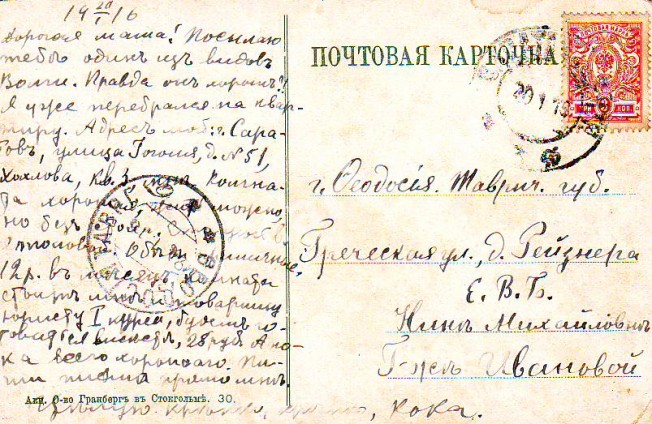 19 20/I 16
Дорогая мама! Посылаю
тебе одинъ изъ видовъ
Волги. Правда онъ хорошъ?!
Я уже перебрался на квар-
тиру. Адресъ мой: г. Сара-
товъ, улица Гоголя, д. N 51,
Хохлова, кв. 3. Комна-
та хорошо,
но безъ
Обѣды приличные,
12 р. въ мѣсяцъ комната
стоитъ мнѣ и товарищу
юристу I курса,
28 руб. А по-
ка всего хорошаго. Пи-
ши письма
Цѣлую крѣпко, крѣпко, Кока.
Акц. О-во Гранбергъ въ Стокгольмѣ. 30.
ПОЧТОВАЯ КАРТОЧКА
г. Ѳеодосія. Таврич. губ.
Греческая ул., д. Рейзнера
Е. В. Б.
Нинѣ Михайловнѣ
Г-жѣ Ивановой